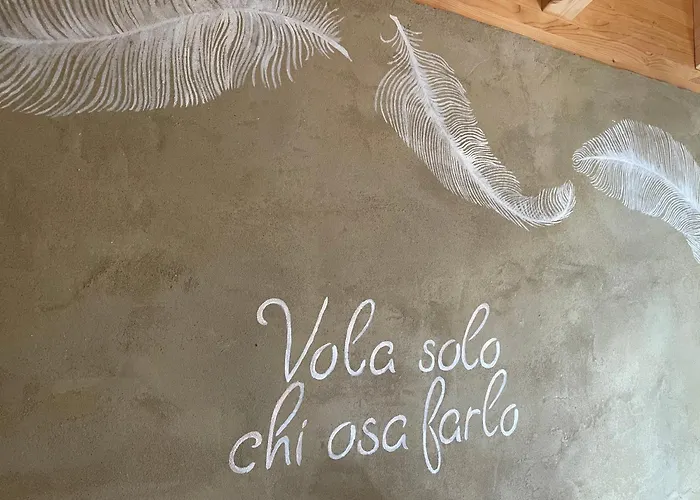 Vola solo
chi osa farlo